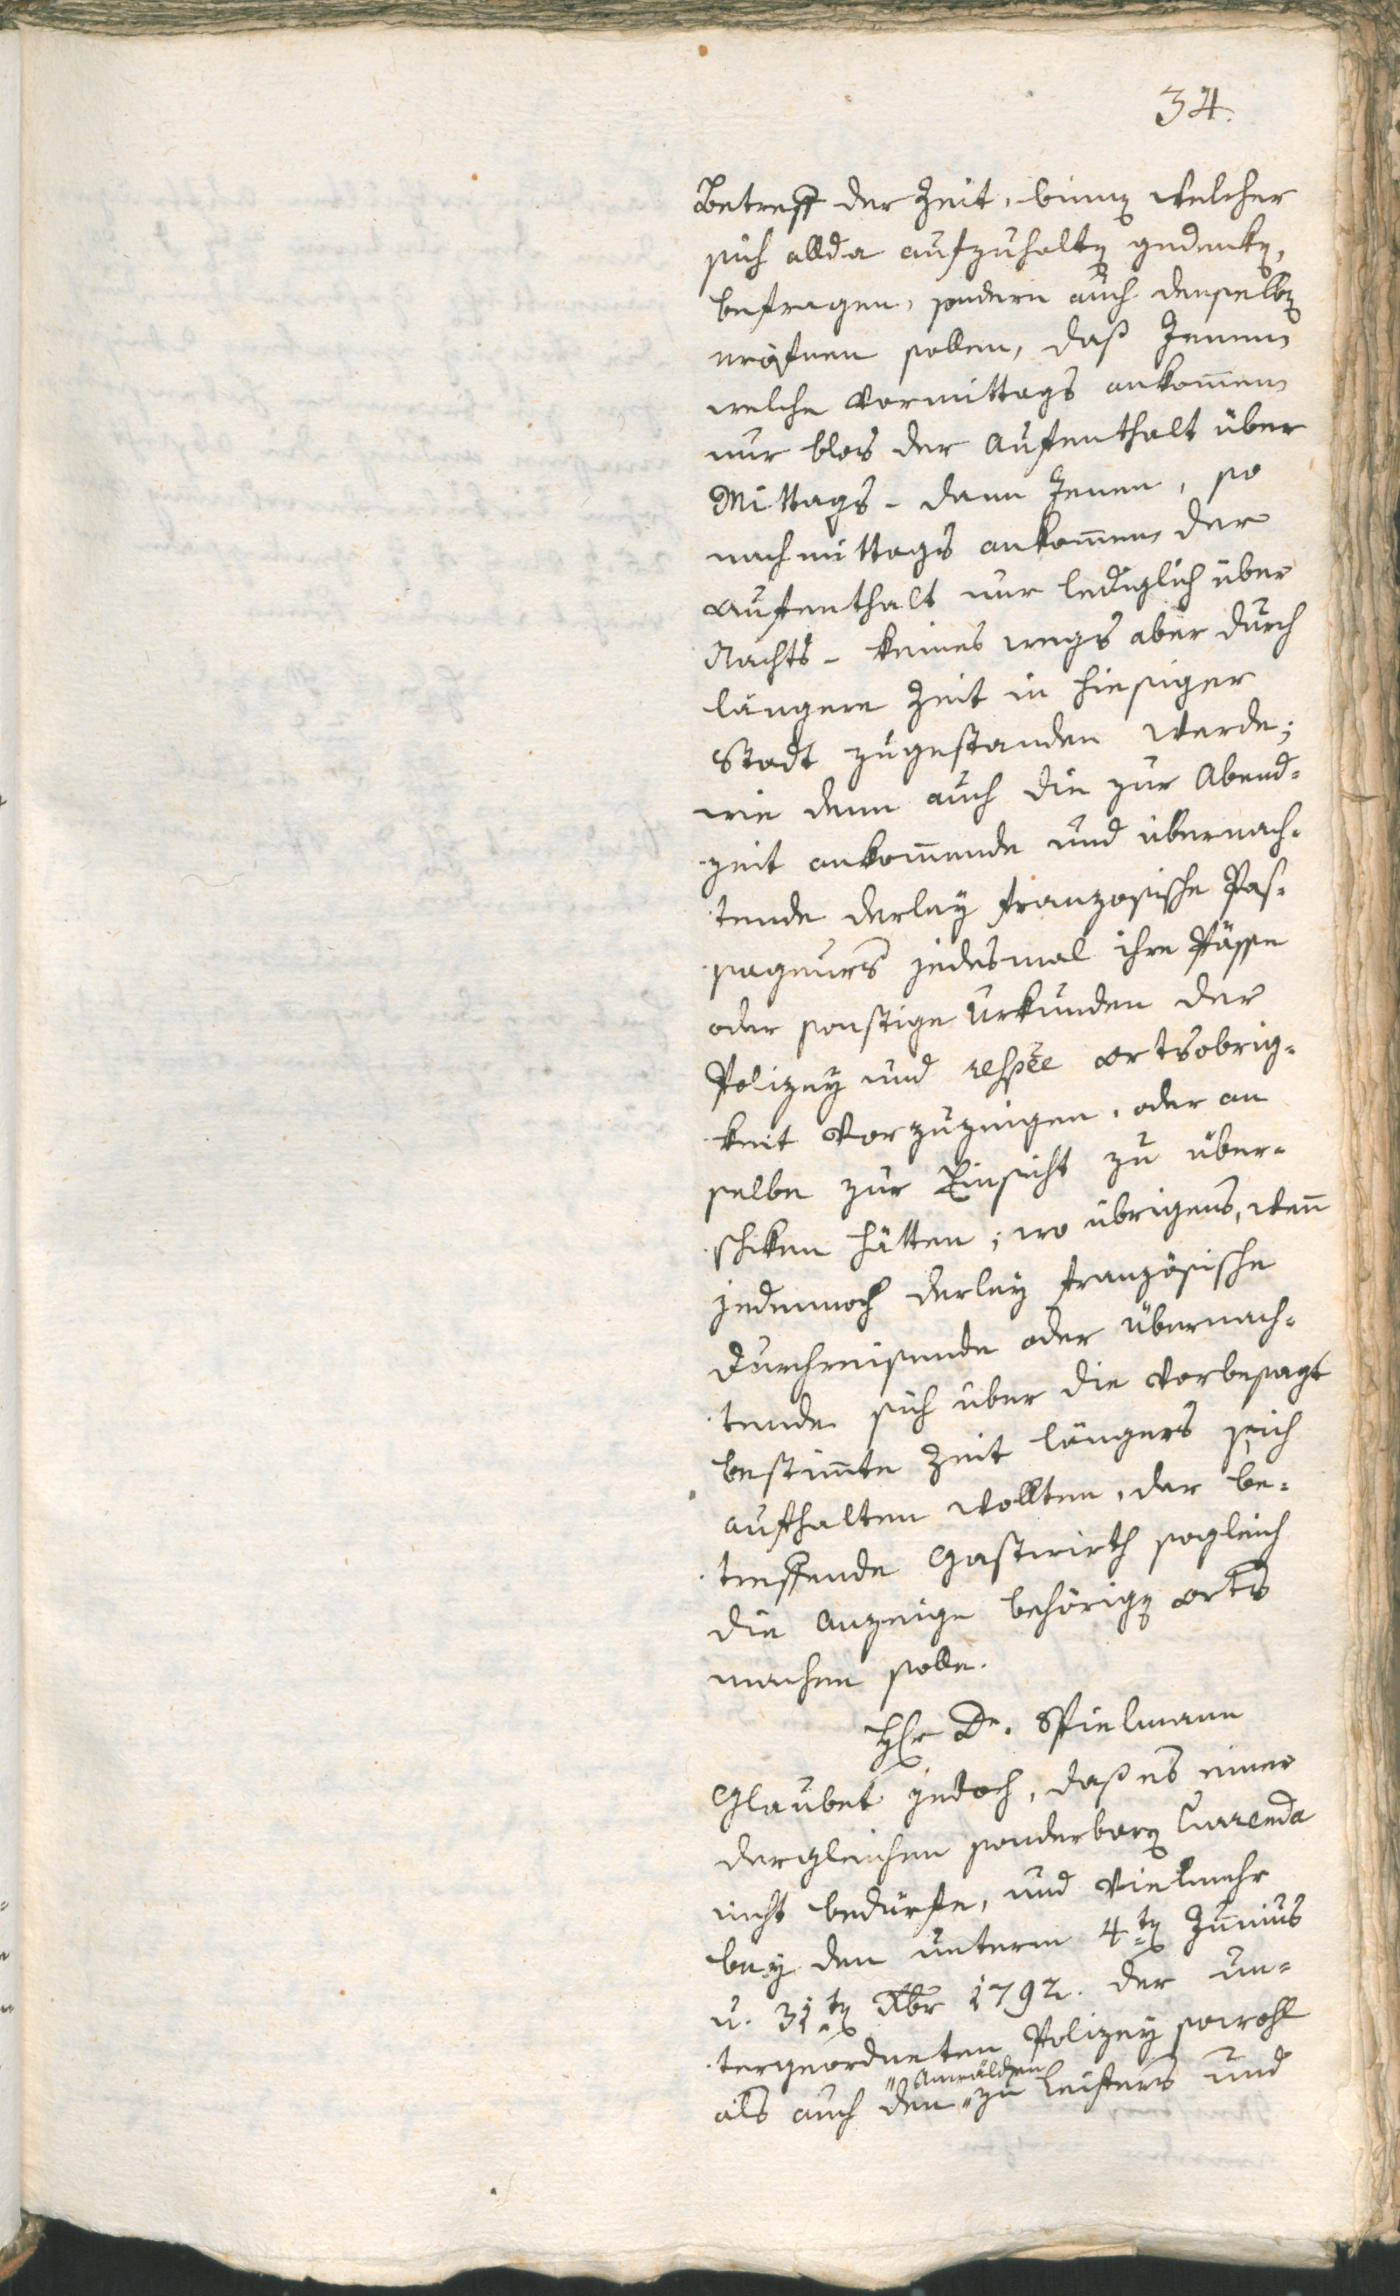 34.
Betreff der Zeit, binnen welcher
sich allda aufzuhalten gedenken,
befragen, sondern auch denselben
eröfnen sollen, daß Jenen
welche vormittags ankom̄en
nur blos der Aufenthalt über
Mittags - dann Jenen, so
nachmittags ankom̄en der
Aufenthalt nur lediglich über
Nachts - keines wegs aber durch
längere Zeit in hiesiger
Stadt zugestanden werde;
wie denn auch die zur Abend=
zeit ankom̄ende und übernach=
tende derley französische Pas=
sageurs jedesmal ihre Pässe
oder sonstige Urkunden der
Polizey und respēe Ortsobrig=
keit vorzuzeigen, oder an
selbe zur Einsicht zu über=
schiken hätten; wo übrigens, wen̄
jedennoch derley französische
Durchreisende oder übernach=
tende sich über die vorbesagt
bestim̄te Zeit längers sich
aufhalten wollten, der be=
treffende Gastwirth sogleich
die Anzeige behörigen Orts
machen solle.
Hr Dr. Spielmann
Glaubet jedoch, daß es einer
dergleichen sonderbaren Currenda
nicht bedürfte, und vielmehr
bey den unterm 4ten Junius
u. 31ten Xbr 1792. der un=
tergeordneten Polizey sowohl
als auch den "Anwälden" zu Leifers und